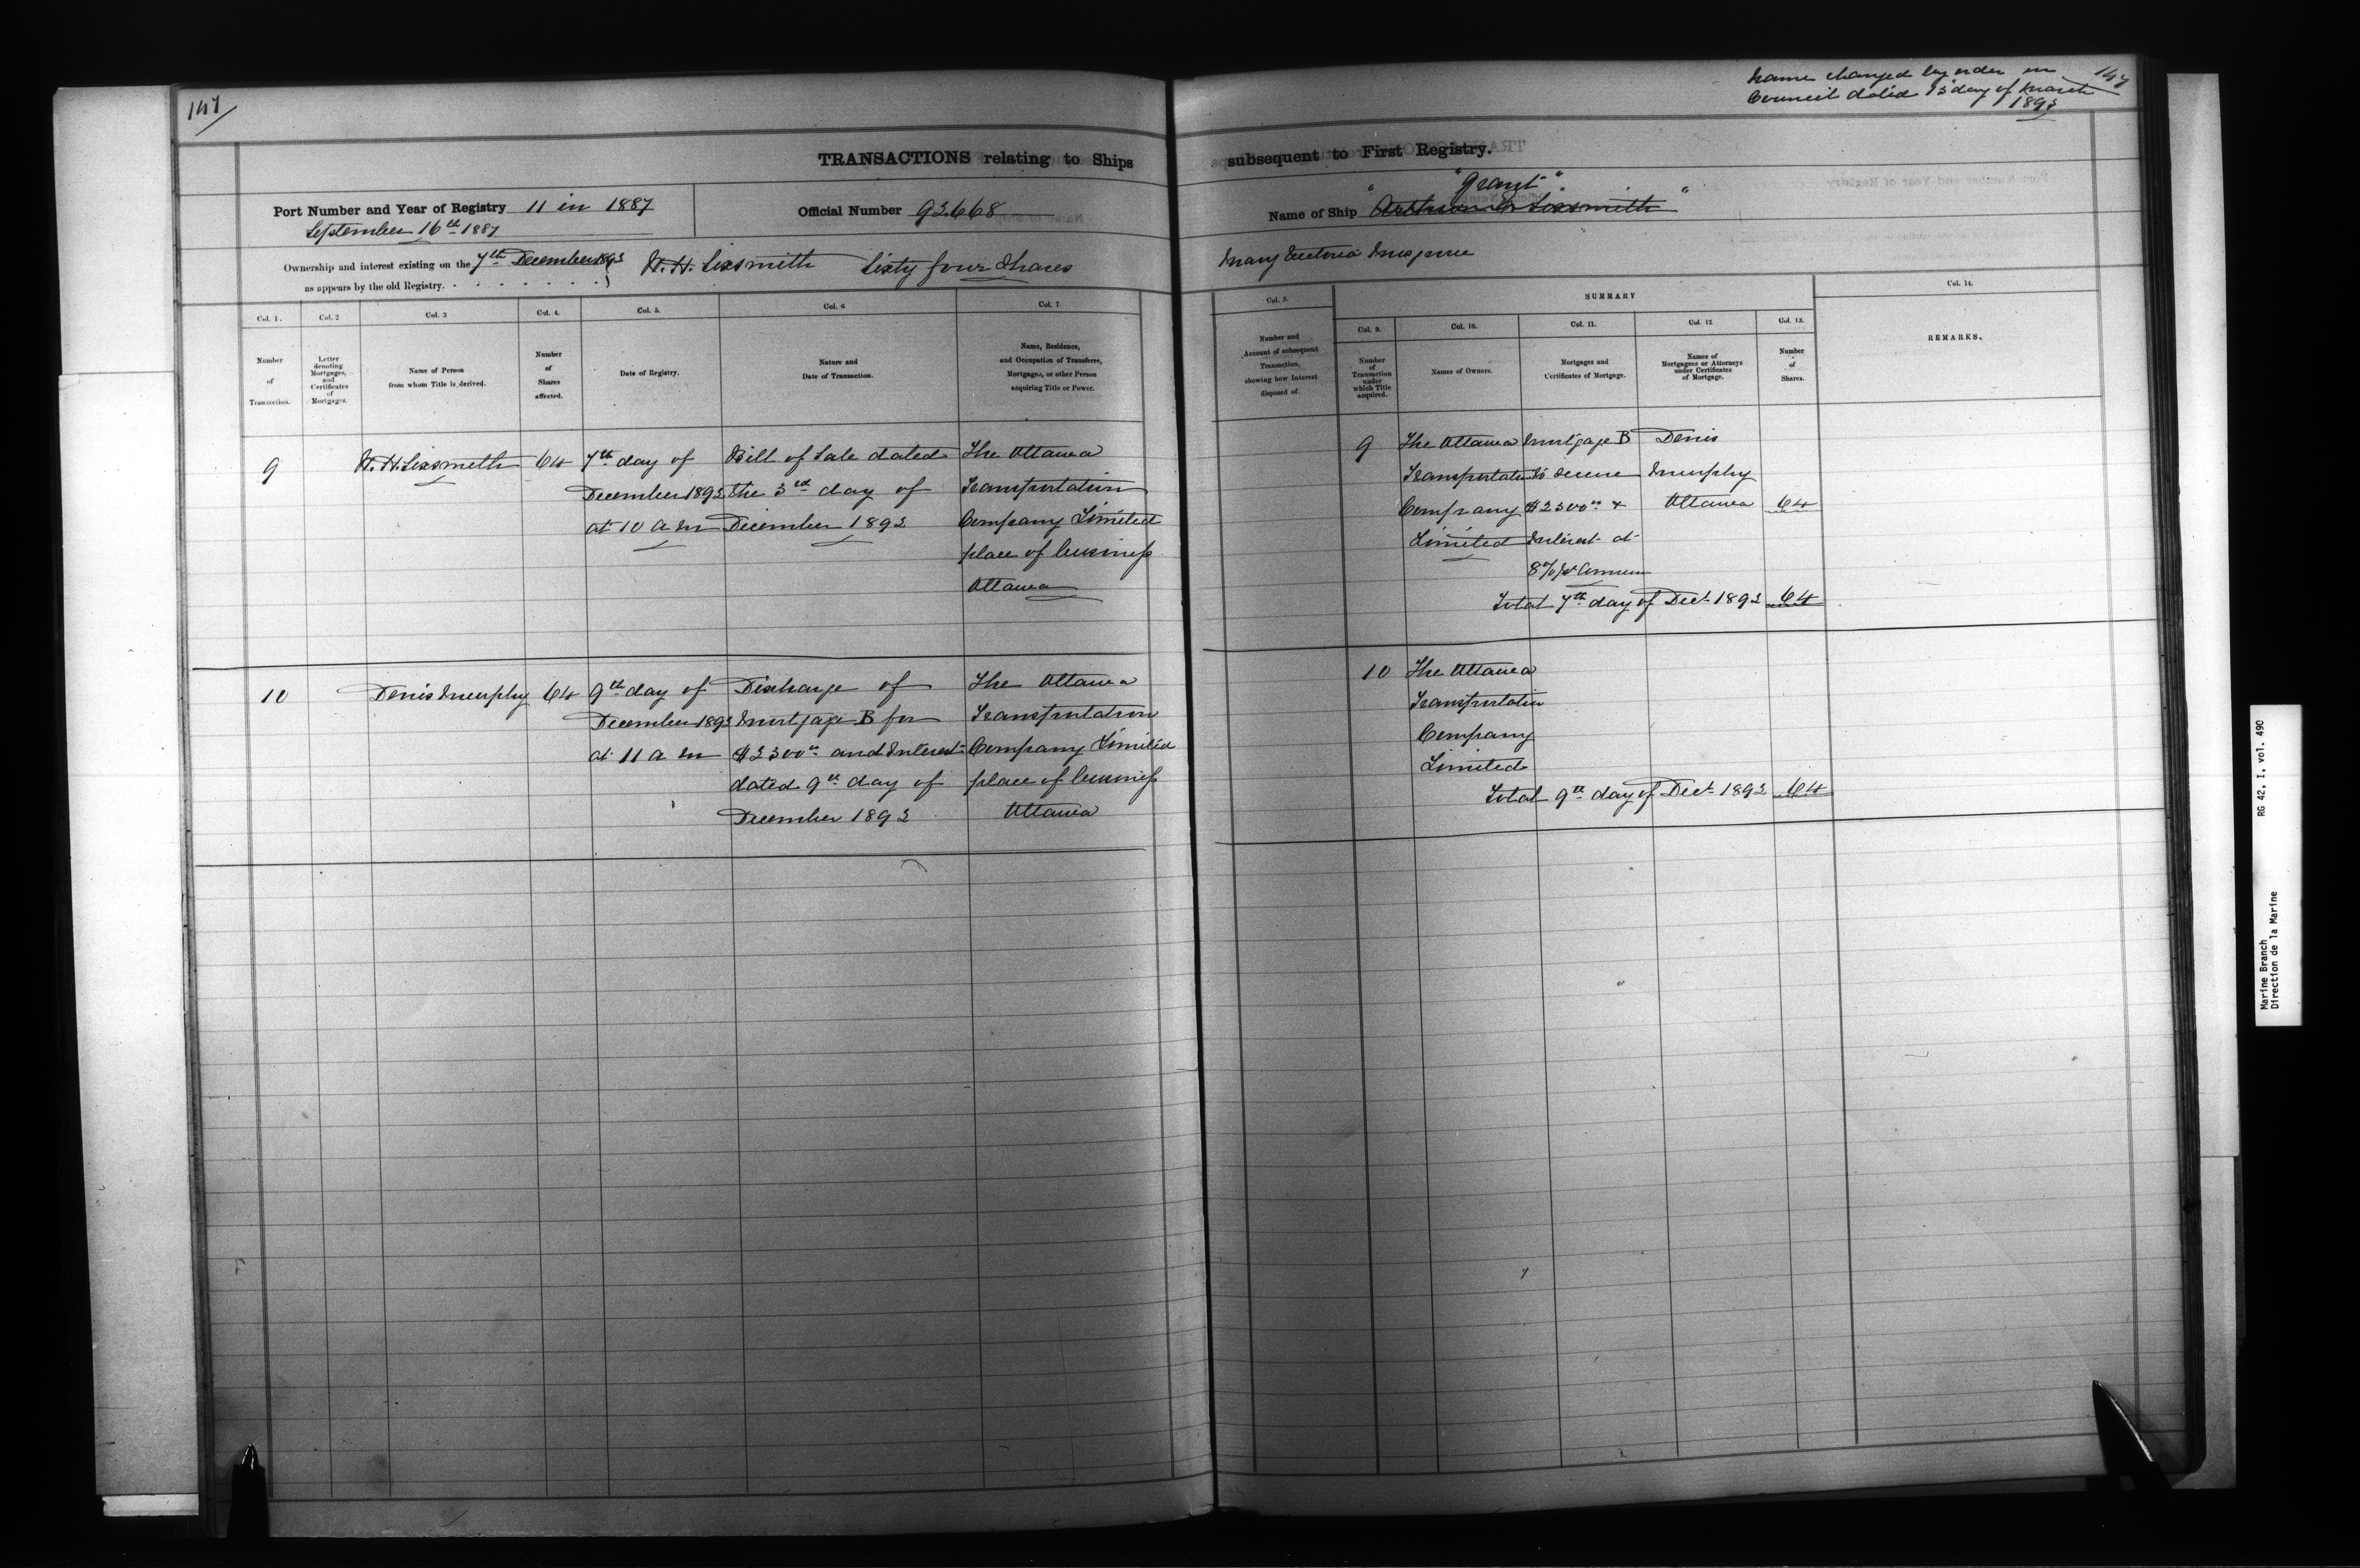 147
TRANSACTIONS relating to Ships
Port Number and Year of Registry 11 in 1887
September 16th 1887
Official Number 92668
Ownership and interest existing on the 7th December 1893
as appears by the old Registry.
W. H. Sixsmith Sixty four Shares
Col. 1.
Number
of
Transaction.
Col. 2
Letter
denoting
Mortgages,
and
Certificates
of
Mortgages.
Col. 3
Name of Person
from whom Title is derived.
Col. 4.
Number
of
Shares
affected.
Col. 5.
Date of Registry.
Col. 6
Nature and
Date of Transaction.
Col. 7
Name, Residence,
and Occupation of Transferee,
Mortgages, or other Person
acquiring Title or Power.
9
W. H. Sixsmith
64
7th day of
December 1893
at 10 a m
Bill of Sale dated
the 3rd day of
December 1893
The Ottawa
Transportation
Company Limited
place of business
Ottawa
10
Denis Murphy
64
9th day of
December 1893
at 11 a m
Discharge of
Mortgage B for
and Interest
dated 9th day of
December 1893
The Ottawa
Transportation
Company Limited
place of business
Ottawa
Name changed by order in
Council dated 13 day of March
1893
147
subsequent to First Registry.
"Grant"
Name of Ship Sixsmith"
Mary
Col. 8.
Number and
Account of subsequent
Transaction,
showing how Interest
disposed of.
SUMMARY
Col. 9.
Number
of
Transaction
under
which Title
acquired.
Col. 10.
Names of Owners.
Col. 11.
Mortgages and
Certificates of Mortgage.
Col. 12
Names of
Mortgagees or Attorneys
under Certificates
of Mortgage.
Col. 13.
Number
of
Shares.
Col. 14.
REMARKS.
9
The Ottawa
Transportation
Company
Limited
Mortgage B
to secure
&
Interest at
8% pr Annum
Denis
Murphy
Ottawa
64
Total 7th day of Dec 1893 64
10
The Ottawa
Transportation
Company
Limited
Total 9th day of Dec 1893 64
RG 42, I, vol. 490
Marine Branch
Direction de la Marine